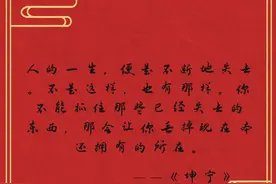 人的一生，便是不断地失去
。不是这样，也有那样。你
不能抓住那些已经失去的
东西，那会让你丢掉现在本
还拥有的所在。
——《坤宁》